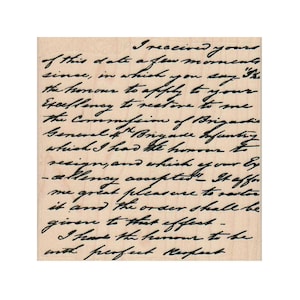 I received yours
of this date a few moments
since, in which you say "I h
the honour to apply to your
Excellency to restore to me
the commission of Brigadi
General of Brigade Infantry
which I had the honour to
resign, and which your Ex
-cellency accepted"- It affo
me great pleasure to rest
it and the order shall be
given to that effect -
I have the honour to be
with perfect respect